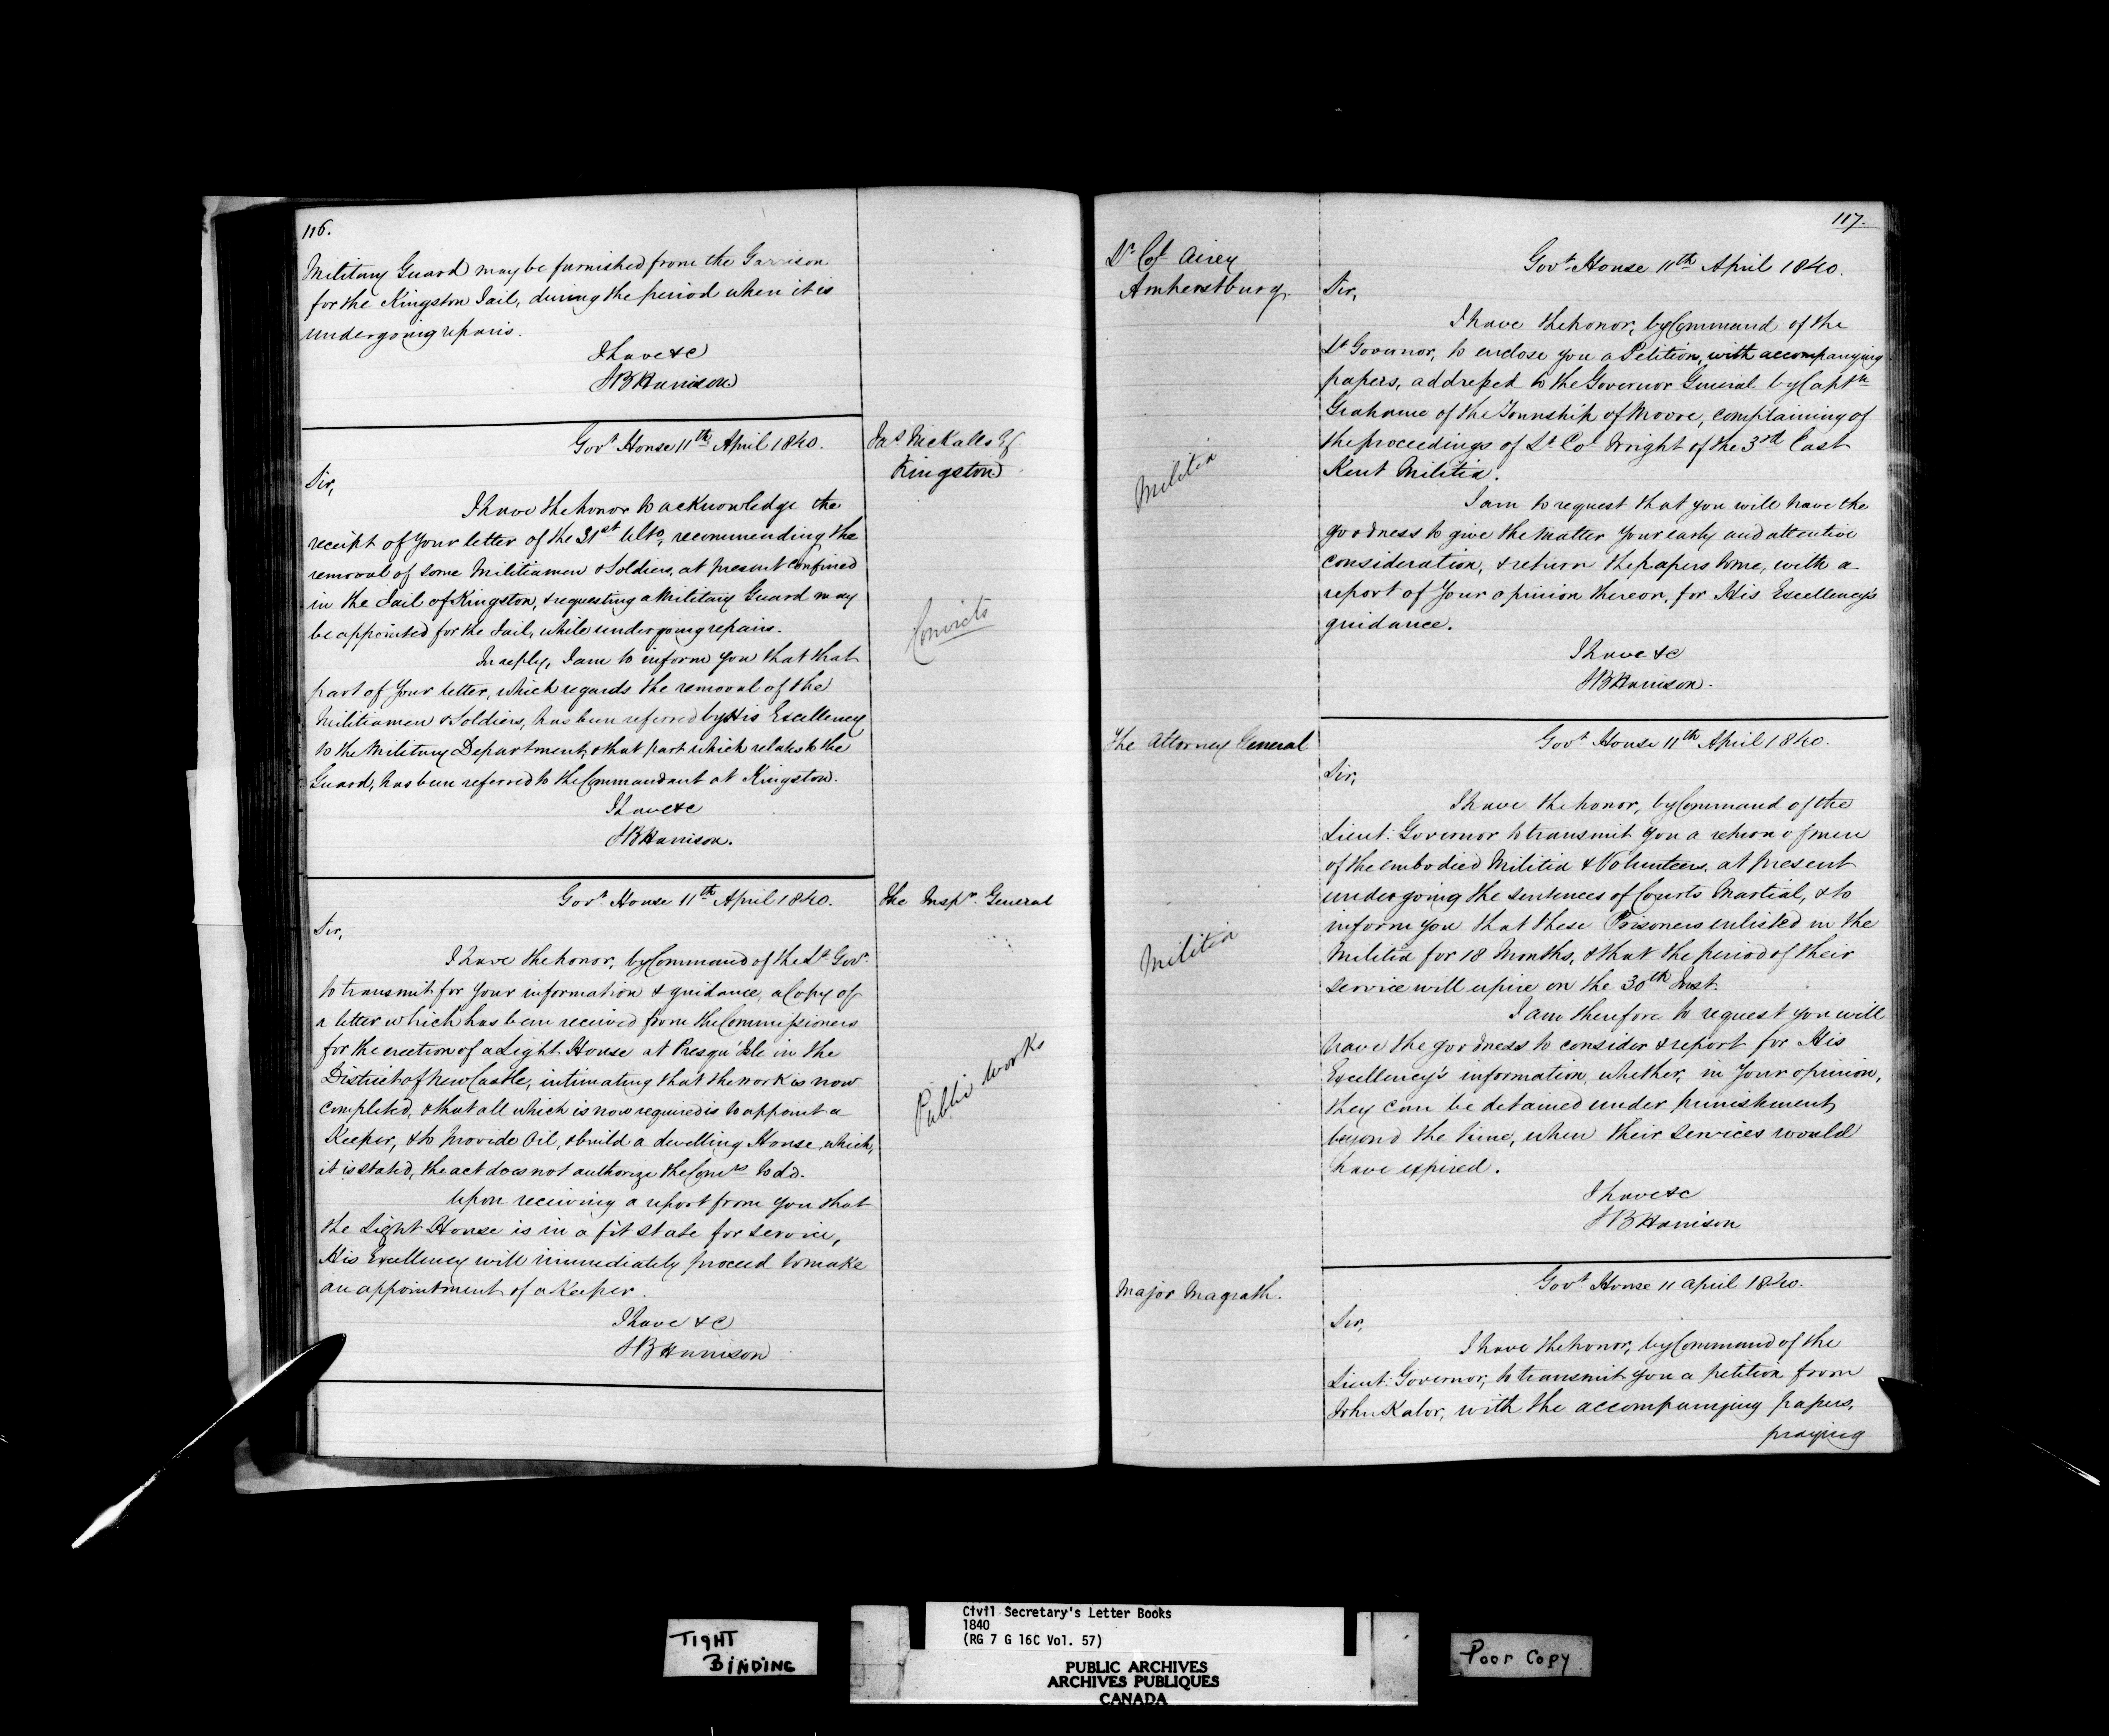 116.
Military Guard may be furnished from the Garrison
for the Kingston Jail, during the period when it is
undergoing repairs.
I have &c
SB Harrison
Govt. House 11th April 1840.
Jas. Nickalls
Kingston
Sir,
I have the honor to acknowledge the
receipt of Your letter of the 31st Ulto, recommending the
removal of some Militiamen & Soldiers, at present confined
in the Jail of Kingston, & requesting a Military Guard may
be appointed for the Jail, while undergoing repairs.
Convicts
In reply, I am to inform you that that
part of Your letter, which regards the removal of the
Militiamen & Soldiers, has been referred by His Excellency
to the Military Department, & that part which relates to the
Guard, has been referred to the Commandant at Kingston.
I have &c
SB Harrison.
Govt. House 11th April 1840.
The Inspr. General
Sir,
I have the honor, by Command of the Lt Govr.
to transmit for Your information & guidance, a Copy of
a letter which has been received from the Commissioners
for the erection of a Light House at Presqu'Isle in the
District of New Castle, intimating that the work is now
completed, & that all which is now required is to appoint a
Keeper, & to provide Oil, & build a dwelling House, which,
it is stated, the act does not authorize the Comrs to do.
Public Works
Upon receiving a report from you that
the Light House is in a fit state for service,
His Excellency will immediately proceed to make
an appointment of a Keeper.
I have &c
SB Harrison
117.
Lt. Col Airey
Amherstburg.
Govt. House 11th April 1840.
Sir,
I have the honor, by Command of the
Lt Governor, to enclose you a Petition, with accompanying
papers, addressed to the Governor General by Captn
Grahame of the Township of Moore, complaining of
the proceedings of Lt. Col Wright of the 3rd East
Kent Militia.
Militia
I am to request that you will have the
goodness to give the matter Your early and attentive
consideration, & return the papers to me, with a
report of Your opinion thereon, for His Excellency's
guidance.
I have &c
SB Harrison.
The Attorney General
Govt. House 11th April 1840.
Sir,
I have the honor, by Command of the
Lieut: Governor to transmit you a return of men
of the embodied Militia & Volunteers, at present
undergoing the sentences of Courts Martial, & to
inform you that these Prisoners enlisted in the
Militia for 18 Months, & that the period of their
service will expire on the 30th Inst.
Militia
I am therefore to request you will
have the goodness to consider & report for His
Excellency's information, whether, in Your opinion,
they can be detained under punishment
beyond the time, when their services would
have expired.
I have &c
SB Harrison
Major Magrath.
Govt. House 11 April 1840.
Sir,
I have the honor, by Command of the
Lieut: Governor, to transmit you a petition from
John Kalor, with the accompanying papers,
praying
TIGHT
BINDING
Civil Secretary's Letter Books
1840
(RG 7 G 16C Vol. 57)
PUBLIC ARCHIVES
ARCHIVES PUBLIQUES
CANADA
Poor Copy